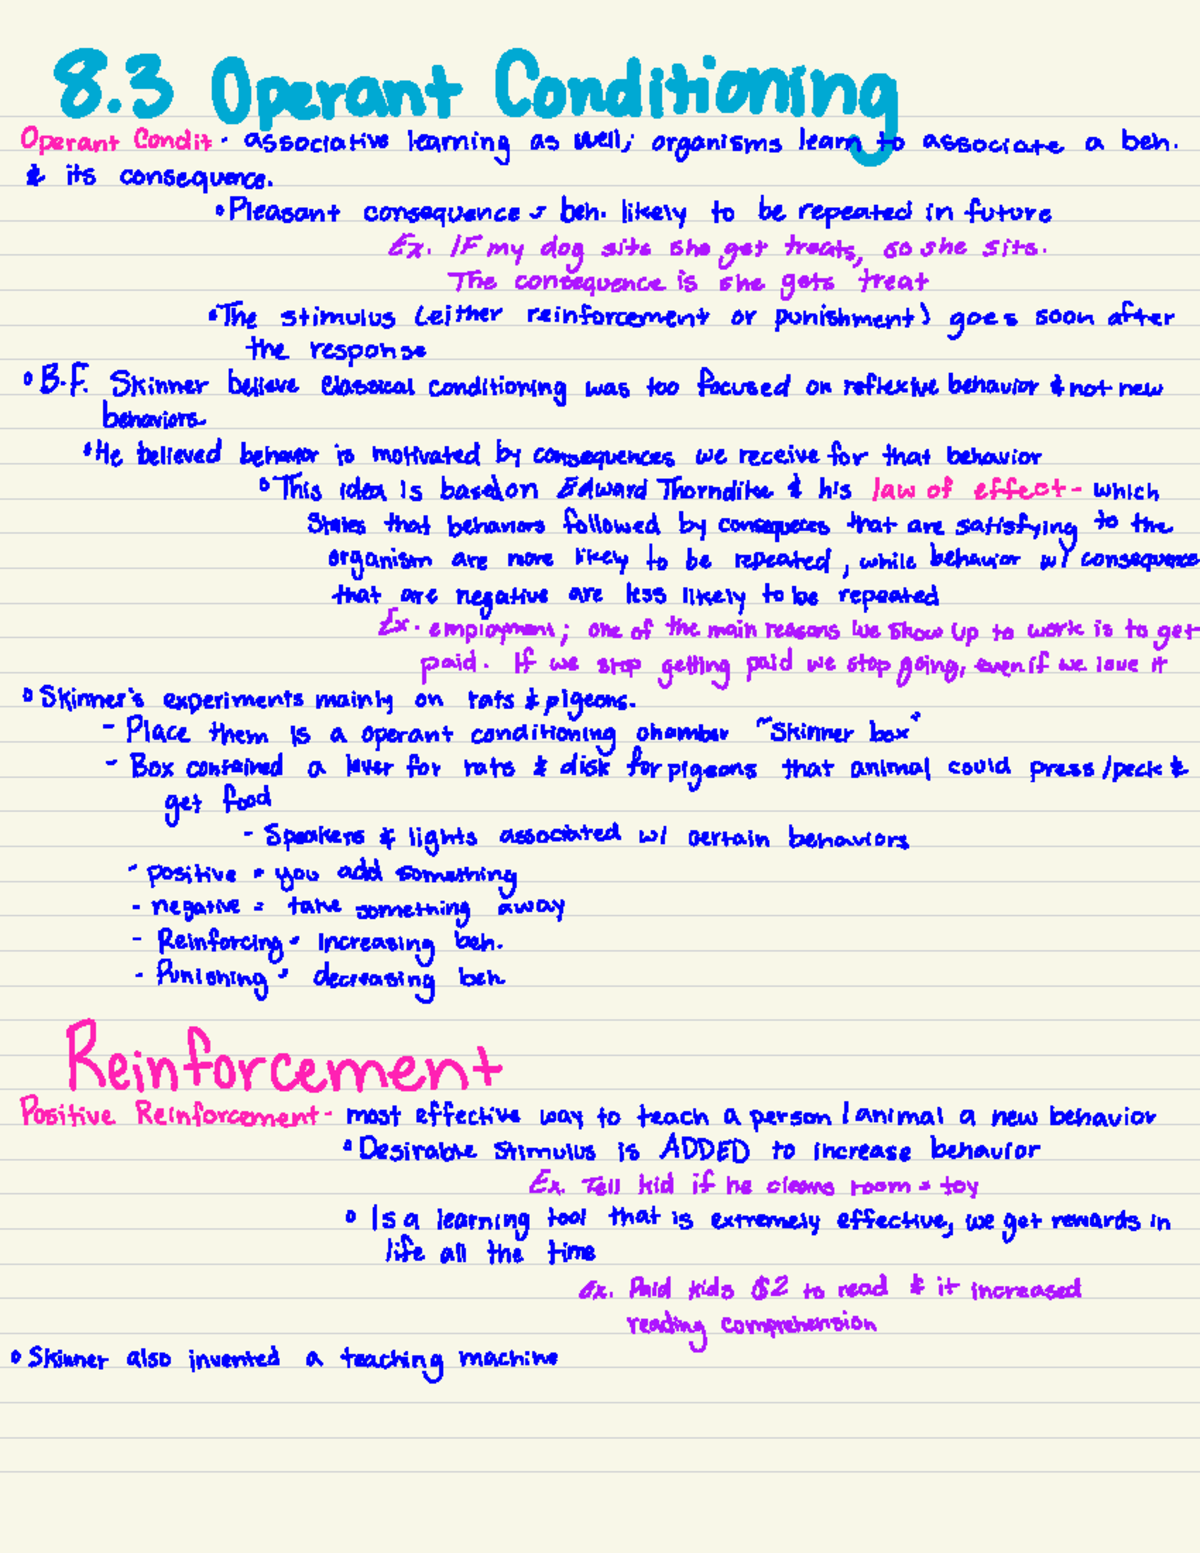 8.3 Operant Conditioning
Operant Condit - associative learning as well; organisms learn to associate a beh.
& its consequence.
• Pleasant consequence → beh. likely to be repeated in future
Ex. If my dog sits she get treats, so she sits.
The consequence is she gets treat
• The stimulus (either reinforcement or punishment) goes soon after
the response
• B.F. Skinner believe classical conditioning was too focused on reflexive behavior & not new
behaviors.
• He believed behavior is motivated by consequences we receive for that behavior
• This idea is based on Edward Thorndike & his law of effect - which
States that behaviors followed by consequeces that are satisfying to the
organism are more likely to be repeated, while behavior w/ consequence
that are negative are less likely to be repeated
Ex. employment; one of the main reasons we show up to work is to get
paid. If we stop getting paid we stop going, even if we love it
• Skinner's experiments mainly on rats & pigeons.
- Place them is a operant conditioning chamber "Skinner box"
- Box contained a lever for rats & disk for pigeons that animal could press/peck &
get food
- Speakers & lights associated w/ certain behaviors
- positive = you add something
- negative = take something away
- Reinforcing = increasing beh.
- Punishing = decreasing beh
Reinforcement
Positive Reinforcement - most effective way to teach a person/animal a new behavior
• Desirable stimulus is ADDED to increase behavior
Ex. Tell kid if he cleans room = toy
• Is a learning tool that is extremely effective, we get rewards in
life all the time
Ex. Paid kids $2 to read & it increased
reading comprehension
• Skinner also invented a teaching machine